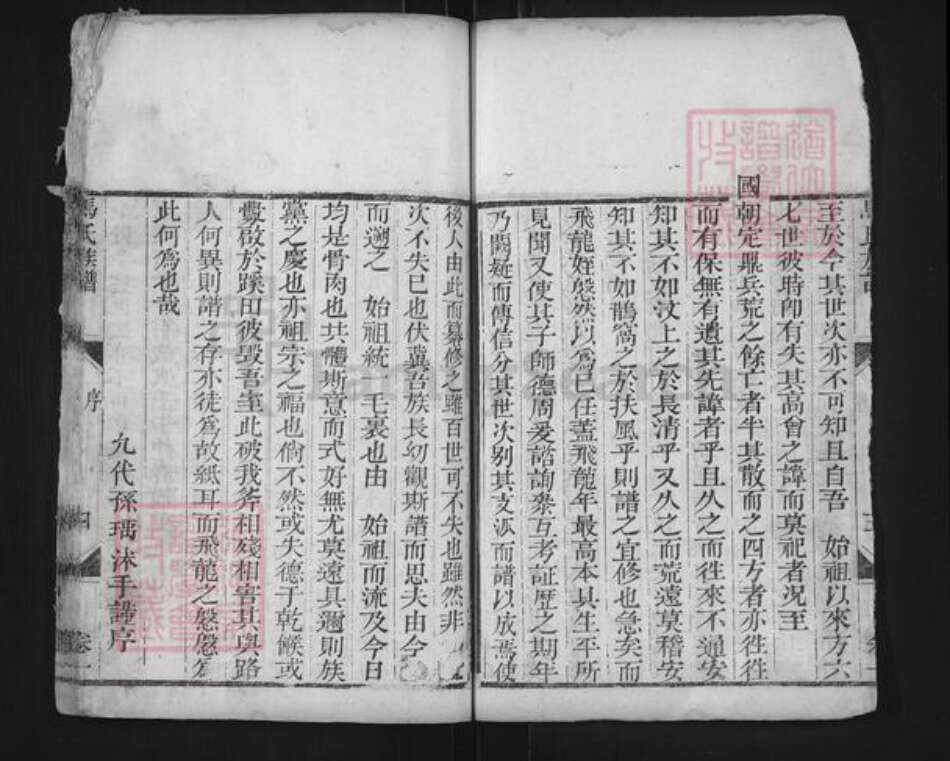 至於今其世次亦不可知且自吾　始祖以來方六
七世彼時卽有失其高曾之諱而莫祀者况至
國朝定鼎兵荒之餘亡者半其散而之四方者亦徃徃
而有保無有遺其先諱者乎且久之而徃來不通安
知其不如汶上之於長清乎又久之而荒遠莫稽安
知其不如鵲窩之於扶風乎則譜之宜修也急矣而
飛龍姪慇然以爲已任蓋飛龍年最高本其生平所
見聞又使其子師德周爰諮詢叅互考証歷之期年
乃闕疑而傳信分其世次别其支派而譜以成焉使
後人由此而纂修之雖百世可不失也雖然非
次不失已也伏冀吾族長幼觀斯譜而思夫由今
而遡之　始祖統一毛裏也由　始祖而流及今日
均是骨肉也共體斯意而式好無尤莫遠具邇則族
黨之慶也亦祖宗之福也倘不然或失德于乾餱或
釁啟於蹊田彼毁吾室此破我斧相殘相害其與路
人何異則譜之存亦徒爲故紙耳而飛龍之慇慇爲
此何爲也哉
九代孫瑀沐手謹序
馬氏族譜
序
四
卷一